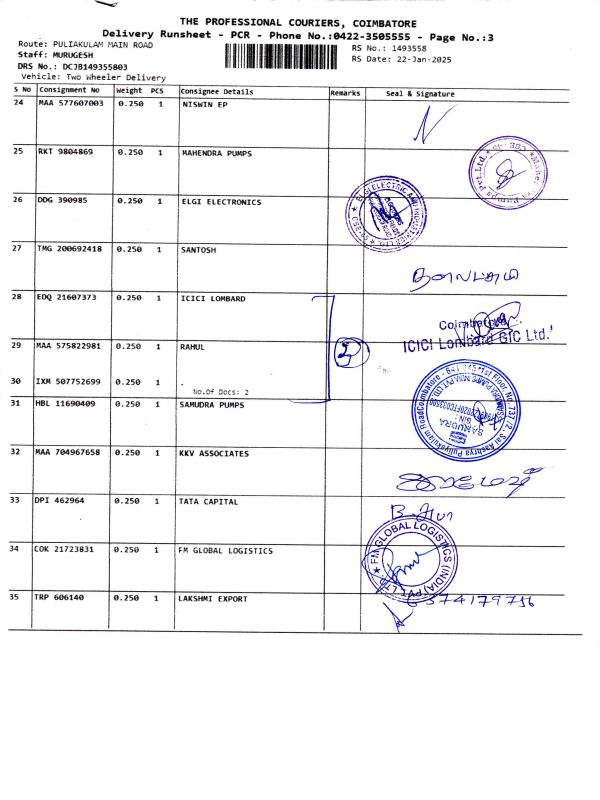 THE PROFESSIONAL COURIERS, COIMBATORE
Delivery Runsheet - PCR - Phone No.:0422-3505555 - Page No.:3
Route: PULIAKULAM MAIN ROAD
Staff: MURUGESH
DRS No.: DCJB149355803
Vehicle: Two Wheeler Delivery
RS No.: 1493558
RS Date: 22-Jan-2025
S No Consignment No Weight PCS Consignee Details Remarks Seal & Signature
24 MAA 577607003 0.250 1 NISWIN EP
25 RKT 9804869 0.250 1 MAHENDRA PUMPS
26 DDG 390985 0.250 1 ELGI ELECTRONICS
27 TMG 200692418 0.250 1 SANTOSH
28 EDQ 21607373 0.250 1 ICICI LOMBARD
Coimbatore
ICICI Lombard GIC Ltd.
29 MAA 575822981 0.250 1 RAHUL
30 IXM 507752699 0.250 1
No.Of Docs: 2
31 HBL 11690409 0.250 1 SAMUDRA PUMPS
SAMUDRA
32 MAA 704967658 0.250 1 KKV ASSOCIATES
33 DPI 462964 0.250 1 TATA CAPITAL
34 COK 21723831 0.250 1 FM GLOBAL LOGISTICS
FM GLOBAL LOGISTICS (INDIA) PVT. LTD.
35 TRP 606140 0.250 1 LAKSHMI EXPORT
6374179756